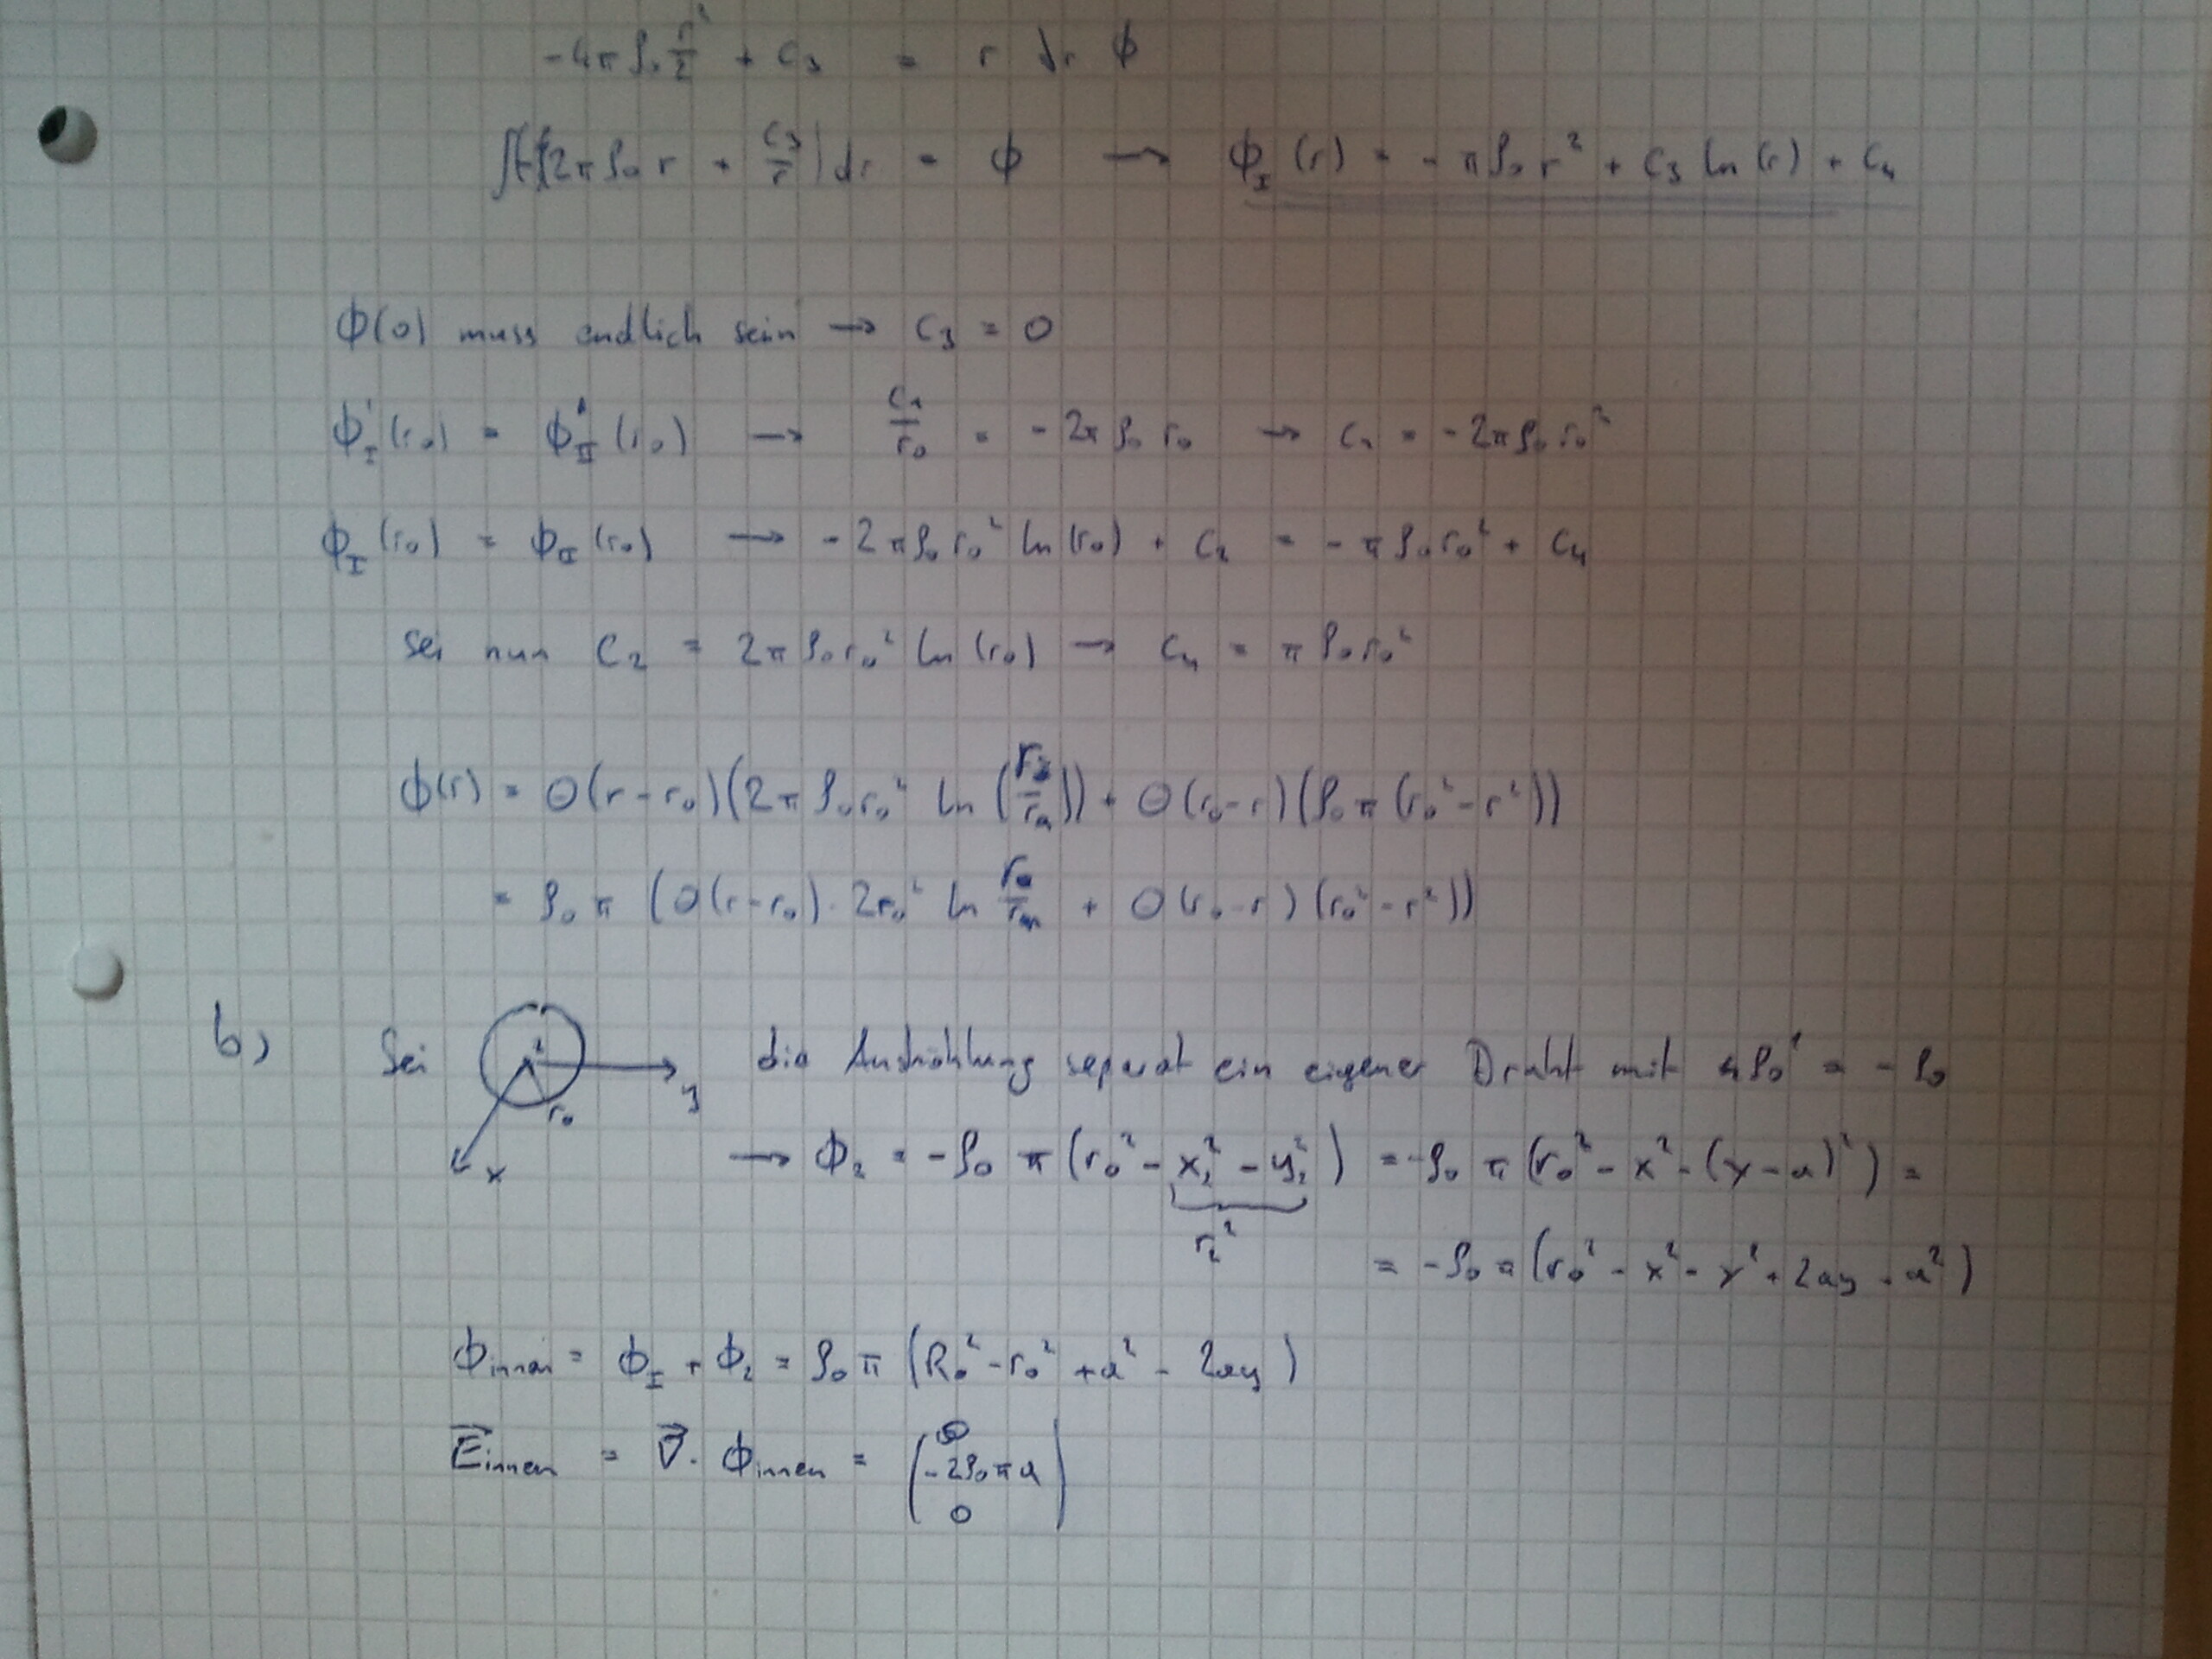 -4πρ₀ r²/2 + c₃ = r ∂r ϕ
∫(-2πρ₀ r + c₃/r) dr = ϕ → ϕ_I (r) = -πρ₀ r² + c₃ ln(r) + c₄
ϕ(0) muss endlich sein → c₃ = 0
ϕ'_I (r₀) = ϕ'_II (r₀) → c₁/r₀ = -2πρ₀ r₀ → c₁ = -2πρ₀ r₀²
ϕ_I (r₀) = ϕ_II (r₀) → -2πρ₀ r₀² ln(r₀) + c₂ = -πρ₀ r₀² + c₄
sei nun c₂ = 2πρ₀ r₀² ln(r₀) → c₄ = πρ₀ r₀²
ϕ(r) = Θ(r-r₀)(2πρ₀ r₀² ln( )) + Θ(r₀-r)(ρ₀π(r₀²-r²))
= ρ₀π (Θ(r-r₀)·2r₀² ln + Θ(r₀-r)(r₀²-r²))
b) Sei r₀ x y die Aushöhlung separat ein eigener Draht mit ρ₀' = -ρ₀
→ ϕ₂ = -ρ₀ π (r₀² - x₂² - y₂²) = -ρ₀ π (r₀² - x² - (y-a)²) =
r₂²
= -ρ₀ π (r₀² - x² - y² + 2ay - a²)
ϕinnen = ϕ_I + ϕ₂ = ρ₀ π (R₀² - r₀² + a² - 2ay)
E⃗innen = ∇⃗· ϕinnen = (0
-2ρ₀πa
0)